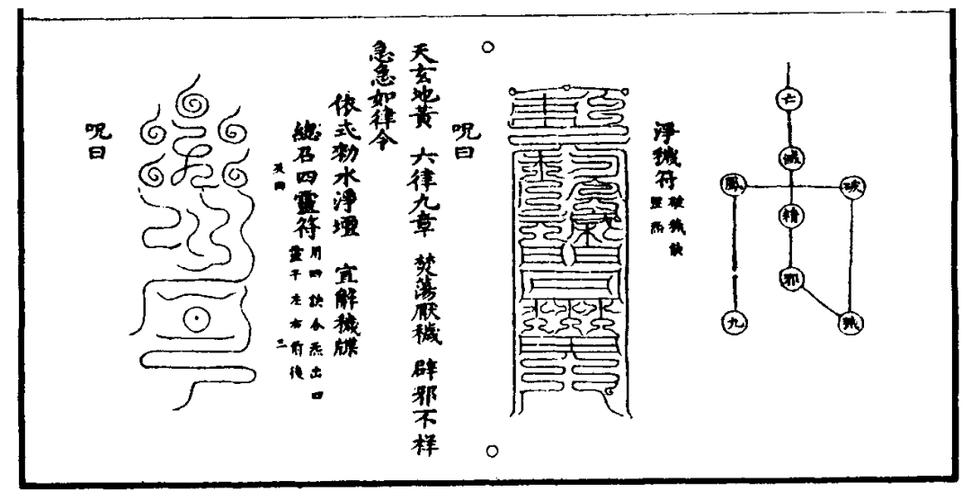 九
鳳
破
穢
邪
精
滅
亡
淨穢符
破穢訣
炁
呪曰
天玄地黃 六律九章 焚蕩厭穢 辟邪不祥
急急如律令
依式勑水淨壇 宜解穢牒
總召四靈符
用四訣令炁出四
靈于左右前後
三
呪曰